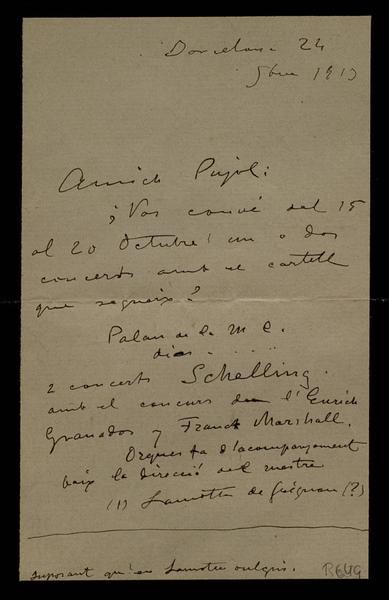 Barcelona 24
9bre 1913
Amich Pujol:
¿Vos convé del 15
al 20 Octubre un o dos
concerts amb el cartell
que segueix?
Palau de la M C.
dias . . . . .
2 concerts Schelling.
amb el concurs de l'Enrich
Granados y Franck Marshall.
Orquesta d'acompanyament
baix la direcció del mestre
(1) Lamotte de Grignon (?)
suposant qu'en Lamotte vulguis.
R649